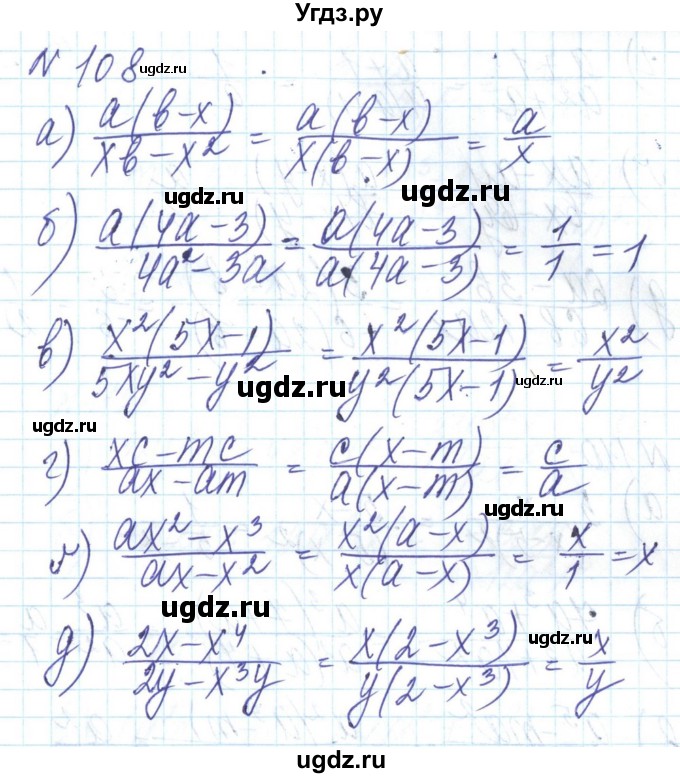 Угдз.ру
N 108 ugdz.ru
а) a(b-x)/(xb-x²) = a(b-x)/(x(b-x)) = a/x
ugdz.ru ugdz.ru
б) a(4a-3)/(4a²-3a) = a(4a-3)/(a(4a-3)) = 1/1 = 1
в) x²(5x-1)/(5xy²-y²) = x²(5x-1)/(y²(5x-1)) = x²/y²
ugdz.ru ugdz.ru
ugdz.ru
г) (xc-mc)/(ax-am) = c(x-m)/(a(x-m)) = c/a
ugdz.ru
(ax²-x³)/(ax-x²) = x²(a-x)/(x(a-x)) = x/1 = x
ugdz.ru
д) (2x-x⁴)/(2y-x³y) = x(2-x³)/(y(2-x³)) = x/y
ugdz.ru
ugdz.ru
ugdz.ru